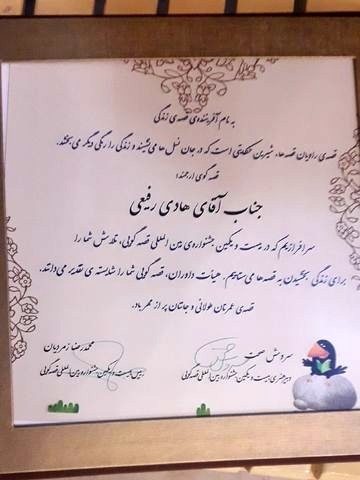 به نام آفریننده‌ی قصه‌ی زندگی
قصه‌ی راویان قصه‌ها، شیرین حکایتی است که در جان نسل‌ها می‌نشیند و زندگی را رنگی دیگر می‌بخشد.
قصه‌گوی ارجمند؛
جناب آقای هادی رفیعی
سرافرازیم که در بیست و یکمین جشنواره‌ی بین‌المللی قصه‌گویی، تلاش شما را
برای زندگی بخشیدن به قصه‌ها می‌ستاییم. هیأت داوران، قصه‌گویی شما را شایسته‌ی تقدیر می‌دانند.
قصه‌ی عمرتان طولانی و جانتان پر از مهر باد.
سروش صحت
دبیر هنری بیست و یکمین جشنواره بین‌المللی قصه‌گویی
محمدرضا زمردیان
رییس بیست و یکمین جشنواره بین‌المللی قصه‌گویی